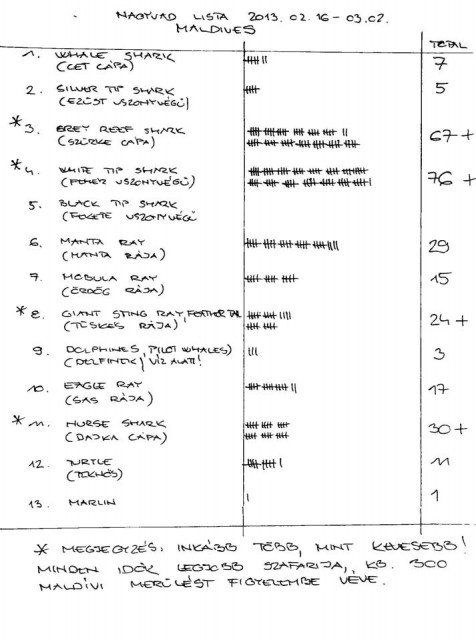 NAGYVAD LISTA 2013. 02. 16 – 03. 02.
MALDIVES
TOTAL
1. WHALE SHARK 7
(CET CÁPA)
2. SILVER TIP SHARK 5
(EZÜST USZONYVÉGŰ)
* 3. GREY REEF SHARK 67 +
(SZÜRKE CÁPA)
* 4. WHITE TIP SHARK 76 +
(FEHÉR USZONYVÉGŰ)
5. BLACK TIP SHARK
(FEKETE USZONYVÉGŰ
6. MANTA RAY 29
(MANTA RÁJA)
7. MOBULA RAY 15
(ÖRDÖG RÁJA)
* 8. GIANT STING RAY, FEATHER TAIL 24 +
(TÜSKÉS RÁJA)
9. DOLPHINES, PILOT WHALES) 3
(DELFINEK) VÍZ ALATT!
10. EAGLE RAY 17
(SAS RÁJA)
* 11. NURSE SHARK 30 +
(DAJKA CÁPA)
12. TURTLE 11
(TEKNŐS)
13. MARLIN 1
* MEGJEGYZÉS, INKÁBB TÖBB, MINT KEVESEBB!
MINDEN IDŐK LEGJOBB SZAFARIJA, KB. 300
MALDÍVI MERÜLÉST FIGYELEMBE VÉVE.